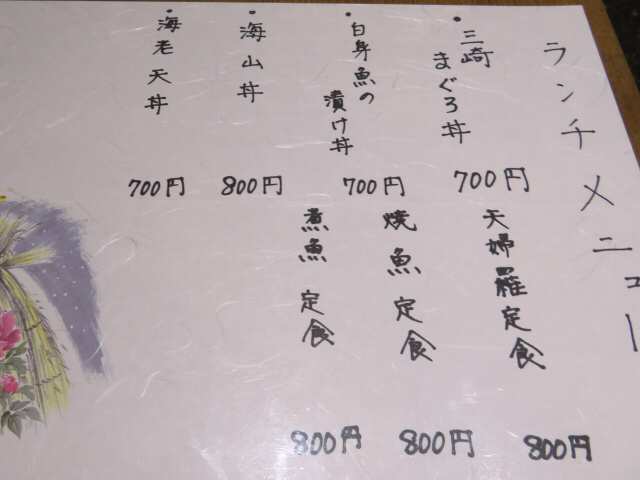 ランチメニュー
・三崎
まぐろ丼
700円
・白身魚の
漬け丼
700円
・海山丼
800円
・海老天丼
700円
天婦羅定食
800円
焼魚定食
800円
煮魚定食
800円